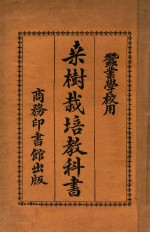 蠶業學校用
桑樹栽培教科書
商務印書館出版